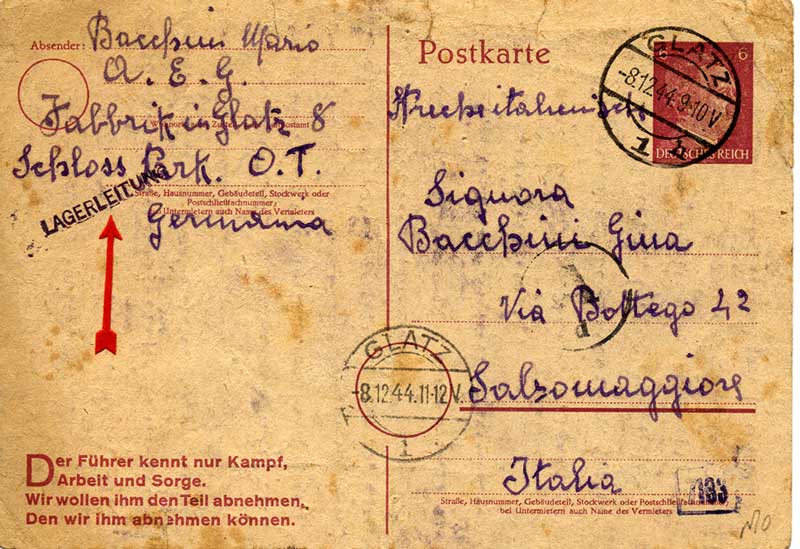 Absender: Bacchini Mario
A. E. G.
Fabbrik in Glatz 8
Schloss Park. O. T.
LAGERLEITUNG
Straße, Hausnummer, Gebäudeteil, Stockwerk oder
Postschließfachnummer;
bei Untermietern auch Name des Vermieters
Germania
Der Führer kennt nur Kampf,
Arbeit und Sorge.
Wir wollen ihm den Teil abnehmen,
Den wir ihm abnehmen können.
Postkarte
GLATZ
-8.12.44.9-10V
1
6
6
DEUTSCHES REICH
Signora
Bacchini Gina
Via Bottego 42
GLATZ
-8.12.44.11-12V.
1
Salsomaggiore
Italia
Straße, Hausnummer, Gebäudeteil, Stockwerk oder Postschließfachnummer;
bei Untermietern auch Name des Vermieters
133